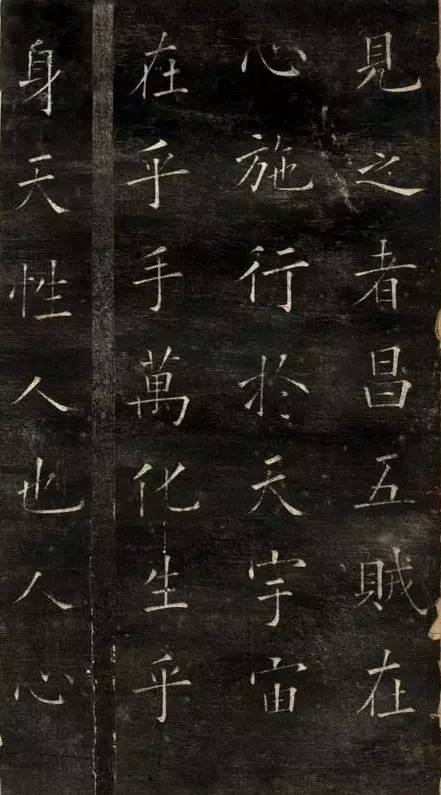 見之者昌五賊在
心施行於天宇宙
在乎手萬化生乎
身天性人也人心